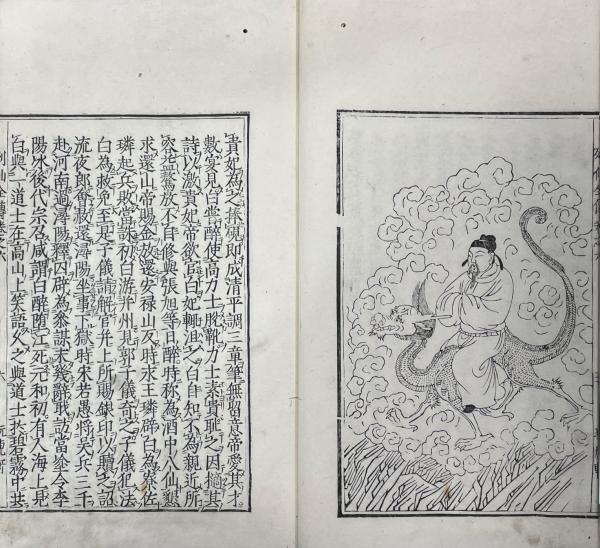 貴妃為之捧硯即成清平調三章筆無留意帝愛其才
數宴見白嘗醉使高力士脫靴力士素貴恥之因摘其
詩以激貴妃帝欲官白妃輒沮之白自知不為親近所
容益驁放不自修與張旭等日醉時称為酒中八仙懇
求還山帝賜金放還安禄山反時永王璘辟白為僚佐
璘起兵敗當誅初白游并州見郭子儀奇之子儀犯法
白為救免至是子儀請解官并上所賜印以贖之詔
流夜郎會赦還潯陽坐事下獄時宋若愚將吳兵三千
赴河南過潯陽釋囚辟為參謀未幾辭職訪當塗令李
陽冰後代宗召咸謂白醉墮江死元和初有人海上見
白與一道士在高山上笑語久之與道士於碧霧中共
列仙全傳卷之六